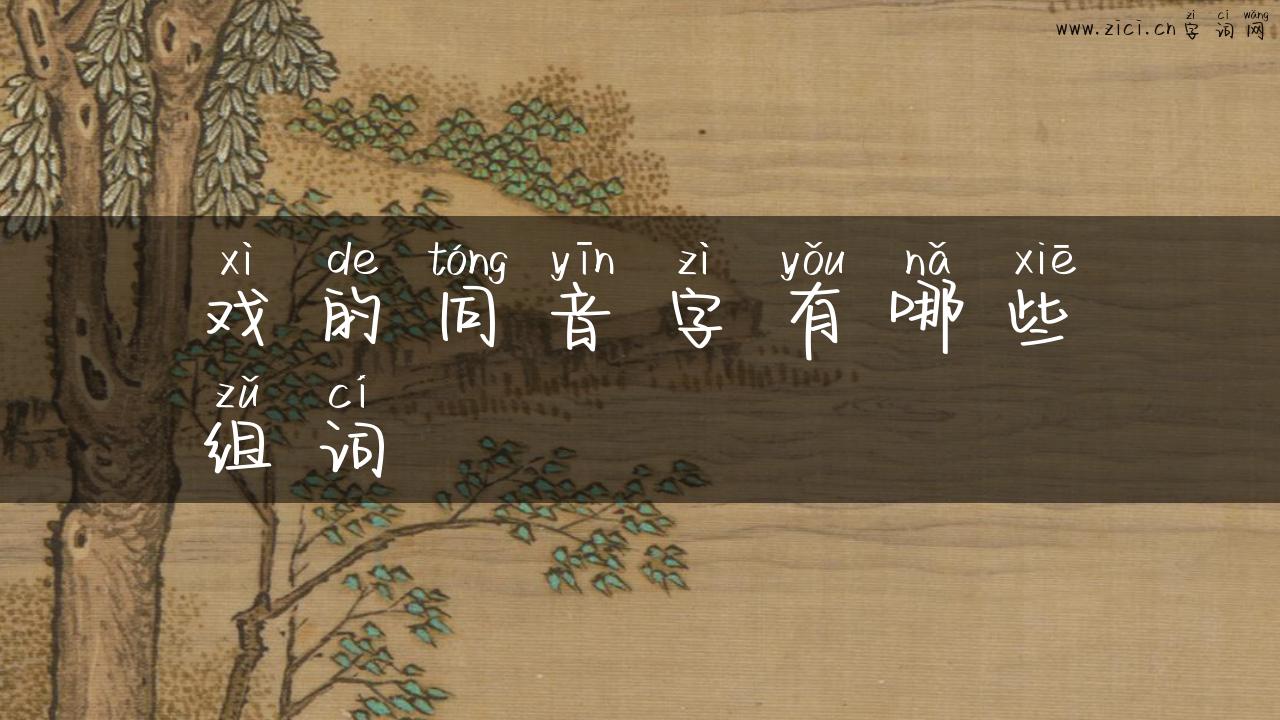 zì cí wǎng
www.zici.cn 字 词 网
xì de tóng yīn zì yǒu nǎ xiē
戏 的 同 音 字 有 哪 些
zǔ cí
组 词